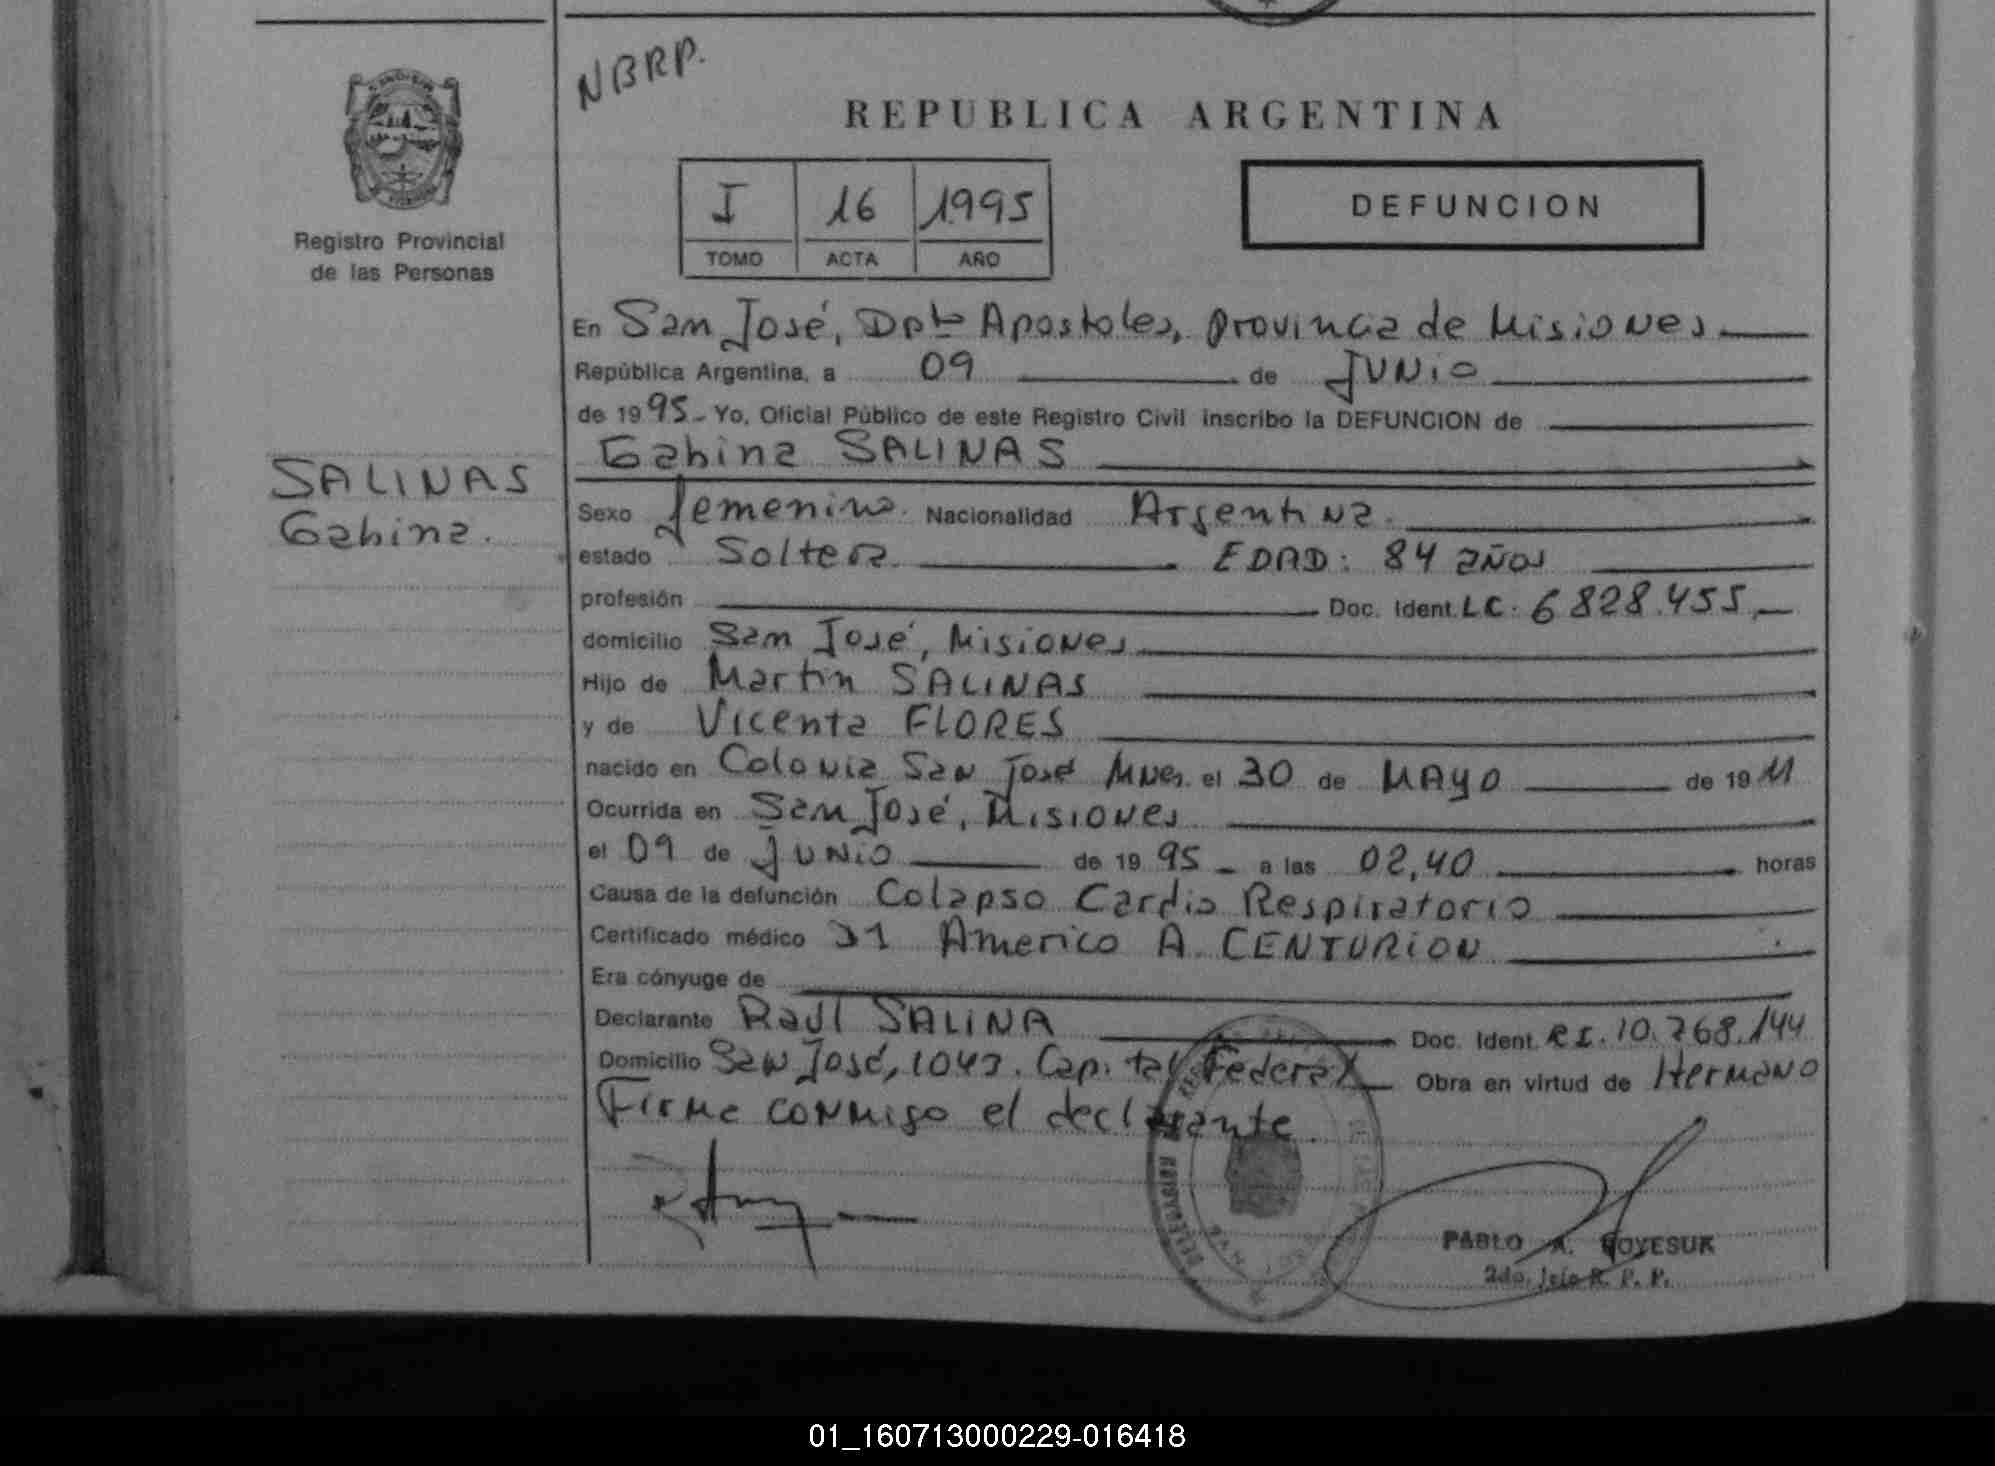 NBRP.
REPUBLICA ARGENTINA
I 16 1995
TOMO ACTA AÑO
DEFUNCION
Registro Provincial
de las Personas
En San José, Dpto Apostoles, provincia de Misiones
República Argentina, a 09 de Junio
de 1995- Yo, Oficial Público de este Registro Civil inscribo la DEFUNCION de
Gabina SALINAS
SALINAS
Gabina.
Sexo femenino. Nacionalidad Argentina.
estado Soltera EDAD: 84 años
profesión Doc. Ident. LC. 6828.455,
domicilio San José, Misiones
Hijo de Martin SALINAS
y de Vicenta FLORES
nacido en Colonia San José Mnes. el 30 de MAYO de 1911
Ocurrida en San José, Misiones
el 09 de Junio de 1995 - a las 02,40 horas
Causa de la defunción Colapso Cardio Respiratorio
Certificado médico Americo A. CENTURION
Era cónyuge de
Declarante Raúl SALINA Doc. Ident. 10.768.144
Domicilio San José, 1043. Capital Federal Obra en virtud de Hermano
Firma conmigo el declarante.
PABLO A.
2do. Jefe R. P. P.
01_160713000229-016418